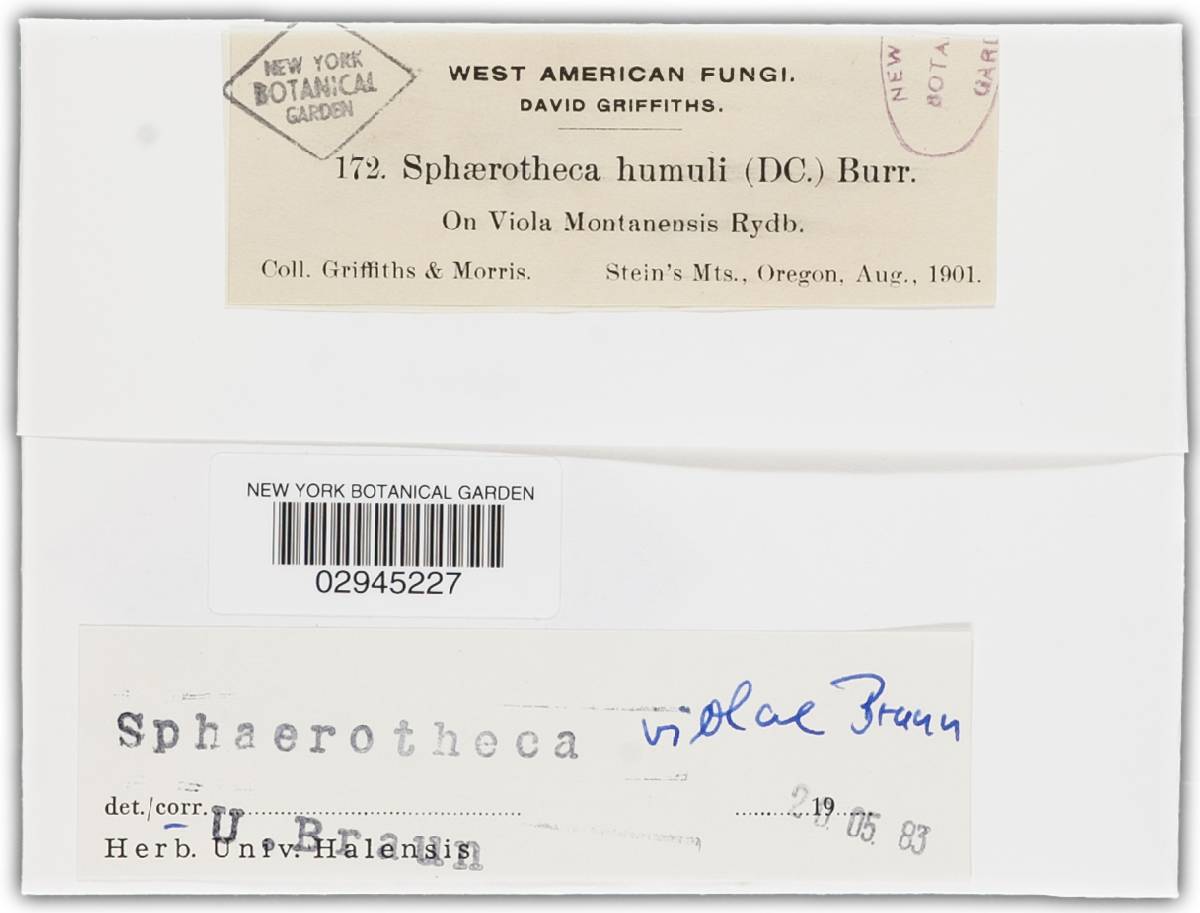 NEW YORK
BOTANICAL
GARDEN
WEST AMERICAN FUNGI.
DAVID GRIFFITHS.
NEW
BOTA
GARD
172. Sphærotheca humuli (DC.) Burr.
On Viola Montanensis Rydb.
Coll. Griffiths & Morris. Stein's Mts., Oregon, Aug., 1901.
NEW YORK BOTANICAL GARDEN
02945227
Sphaerotheca violae Braun
det./corr. U. Braun 19
05. 83
Herb. Univ. Halensis